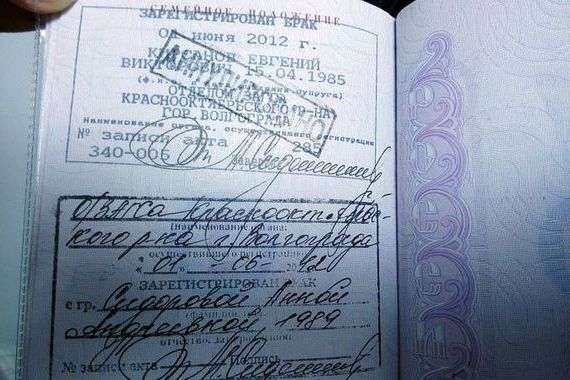 СЕМЕЙНОЕ ПОЛОЖЕНИЕ
ЗАРЕГИСТРИРОВАН БРАК
01 июня 2012 г.
ЕВГЕНИЙ
15.04.1985
ОТДЕЛОМ
КРАСНООКТЯБРЕСКОГО Р-НА
ГОР. ВОЛГОГРАДА
Наименование органа, осуществившего регистрации
№ записи акта 285
340-006
О/ЗАГСа Красноокт.
кого р-на г. Волгограда
(наименование органа:
осуществившего регистрацию)
"01" - 06 - 2012
ЗАРЕГИСТРИРОВАН БРАК
с гр. Сидоровой Анной
Андреевной, 1989
отчество, дата рождения
№ записи акта Подпись